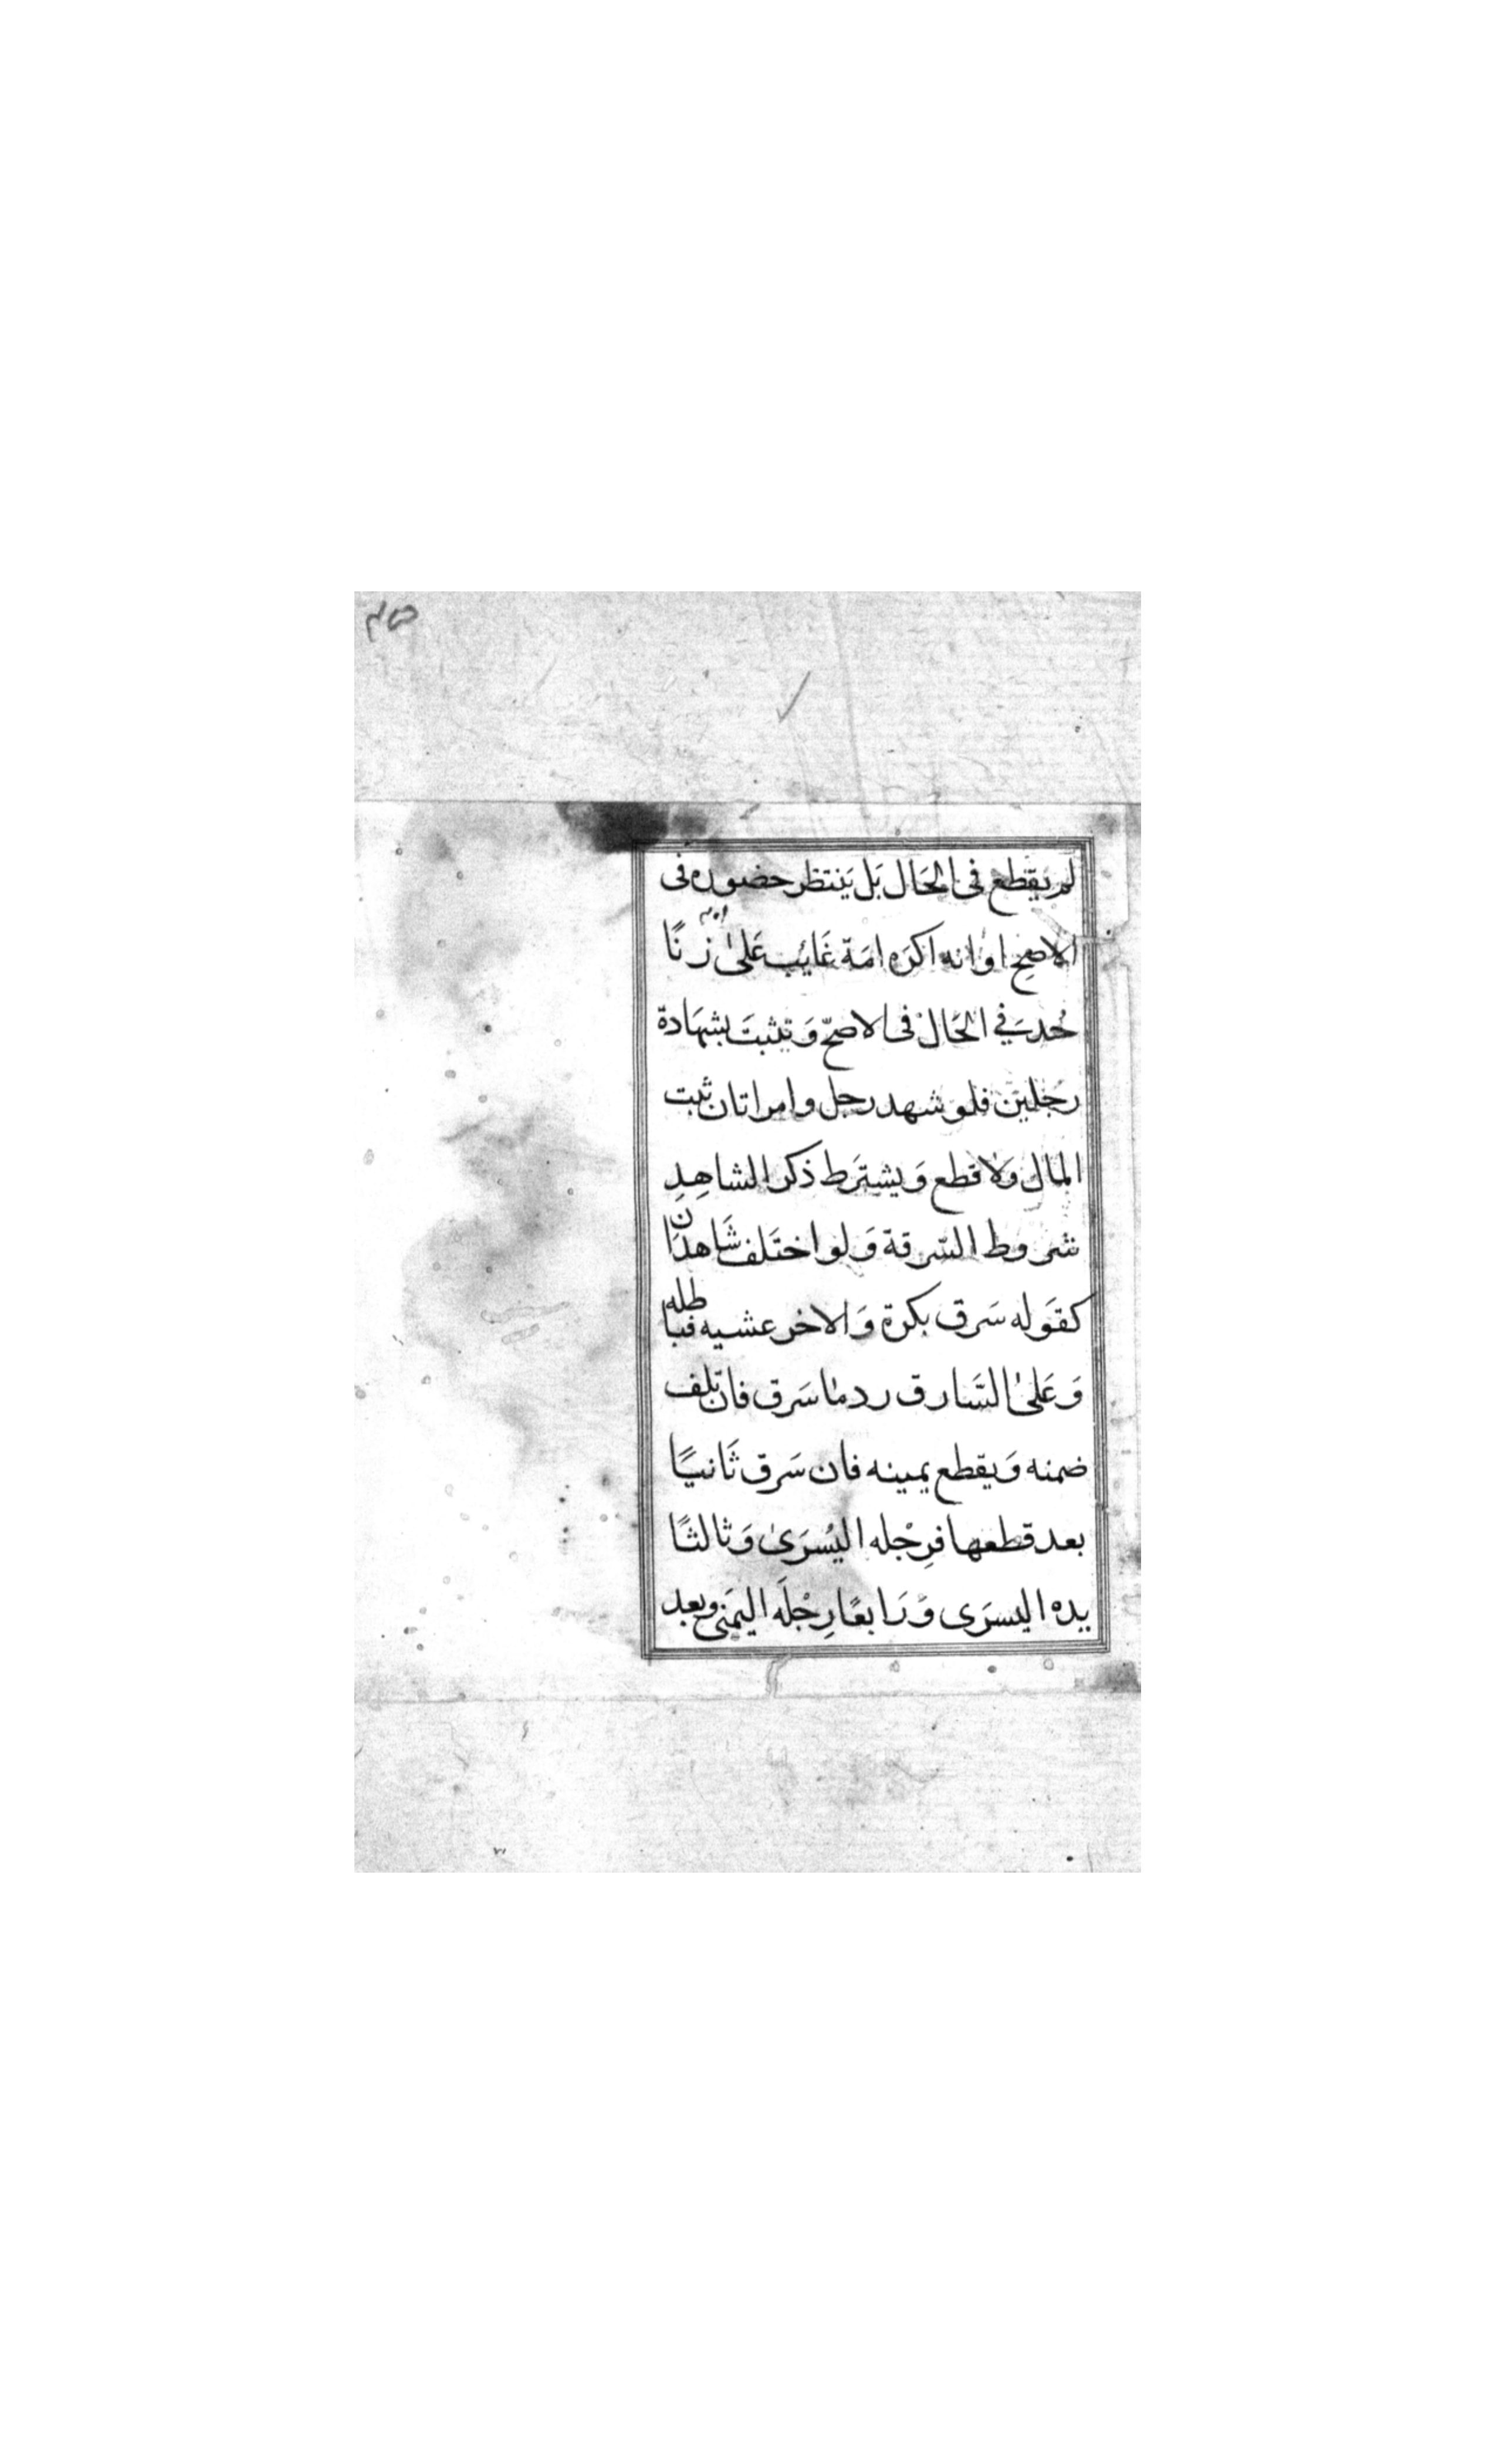 لم يقطع فى الحَال بَل يَنتظر حضوره فى
الاصحِ او انه اكرَه امَة غَايب عَلىٰ زنًا
حُد في الحَالْ فى الاصحّ وَ تثبتَ بشهَادة
رجلين فلو شهد رجل وامراتان ثبت
المال ولا قطع وَيشترَط ذكر الشاهِدِ
شروط السّرقة وَلو اختَلف شَاهدَان
كقوَله سَرق بكرة وَالاخر عشيه فباطله
وَعَلىٰ السَّارق رد ما سَرق فان تلف
ضمنه وَيقطع يمينه فان سَرق ثَانيًا
بعد قطعها فرِجْله اليُسرَىٰ وَثالثًا
يده اليسرَى وَرَابعًا رِجْلَه اليمَنى وبعد